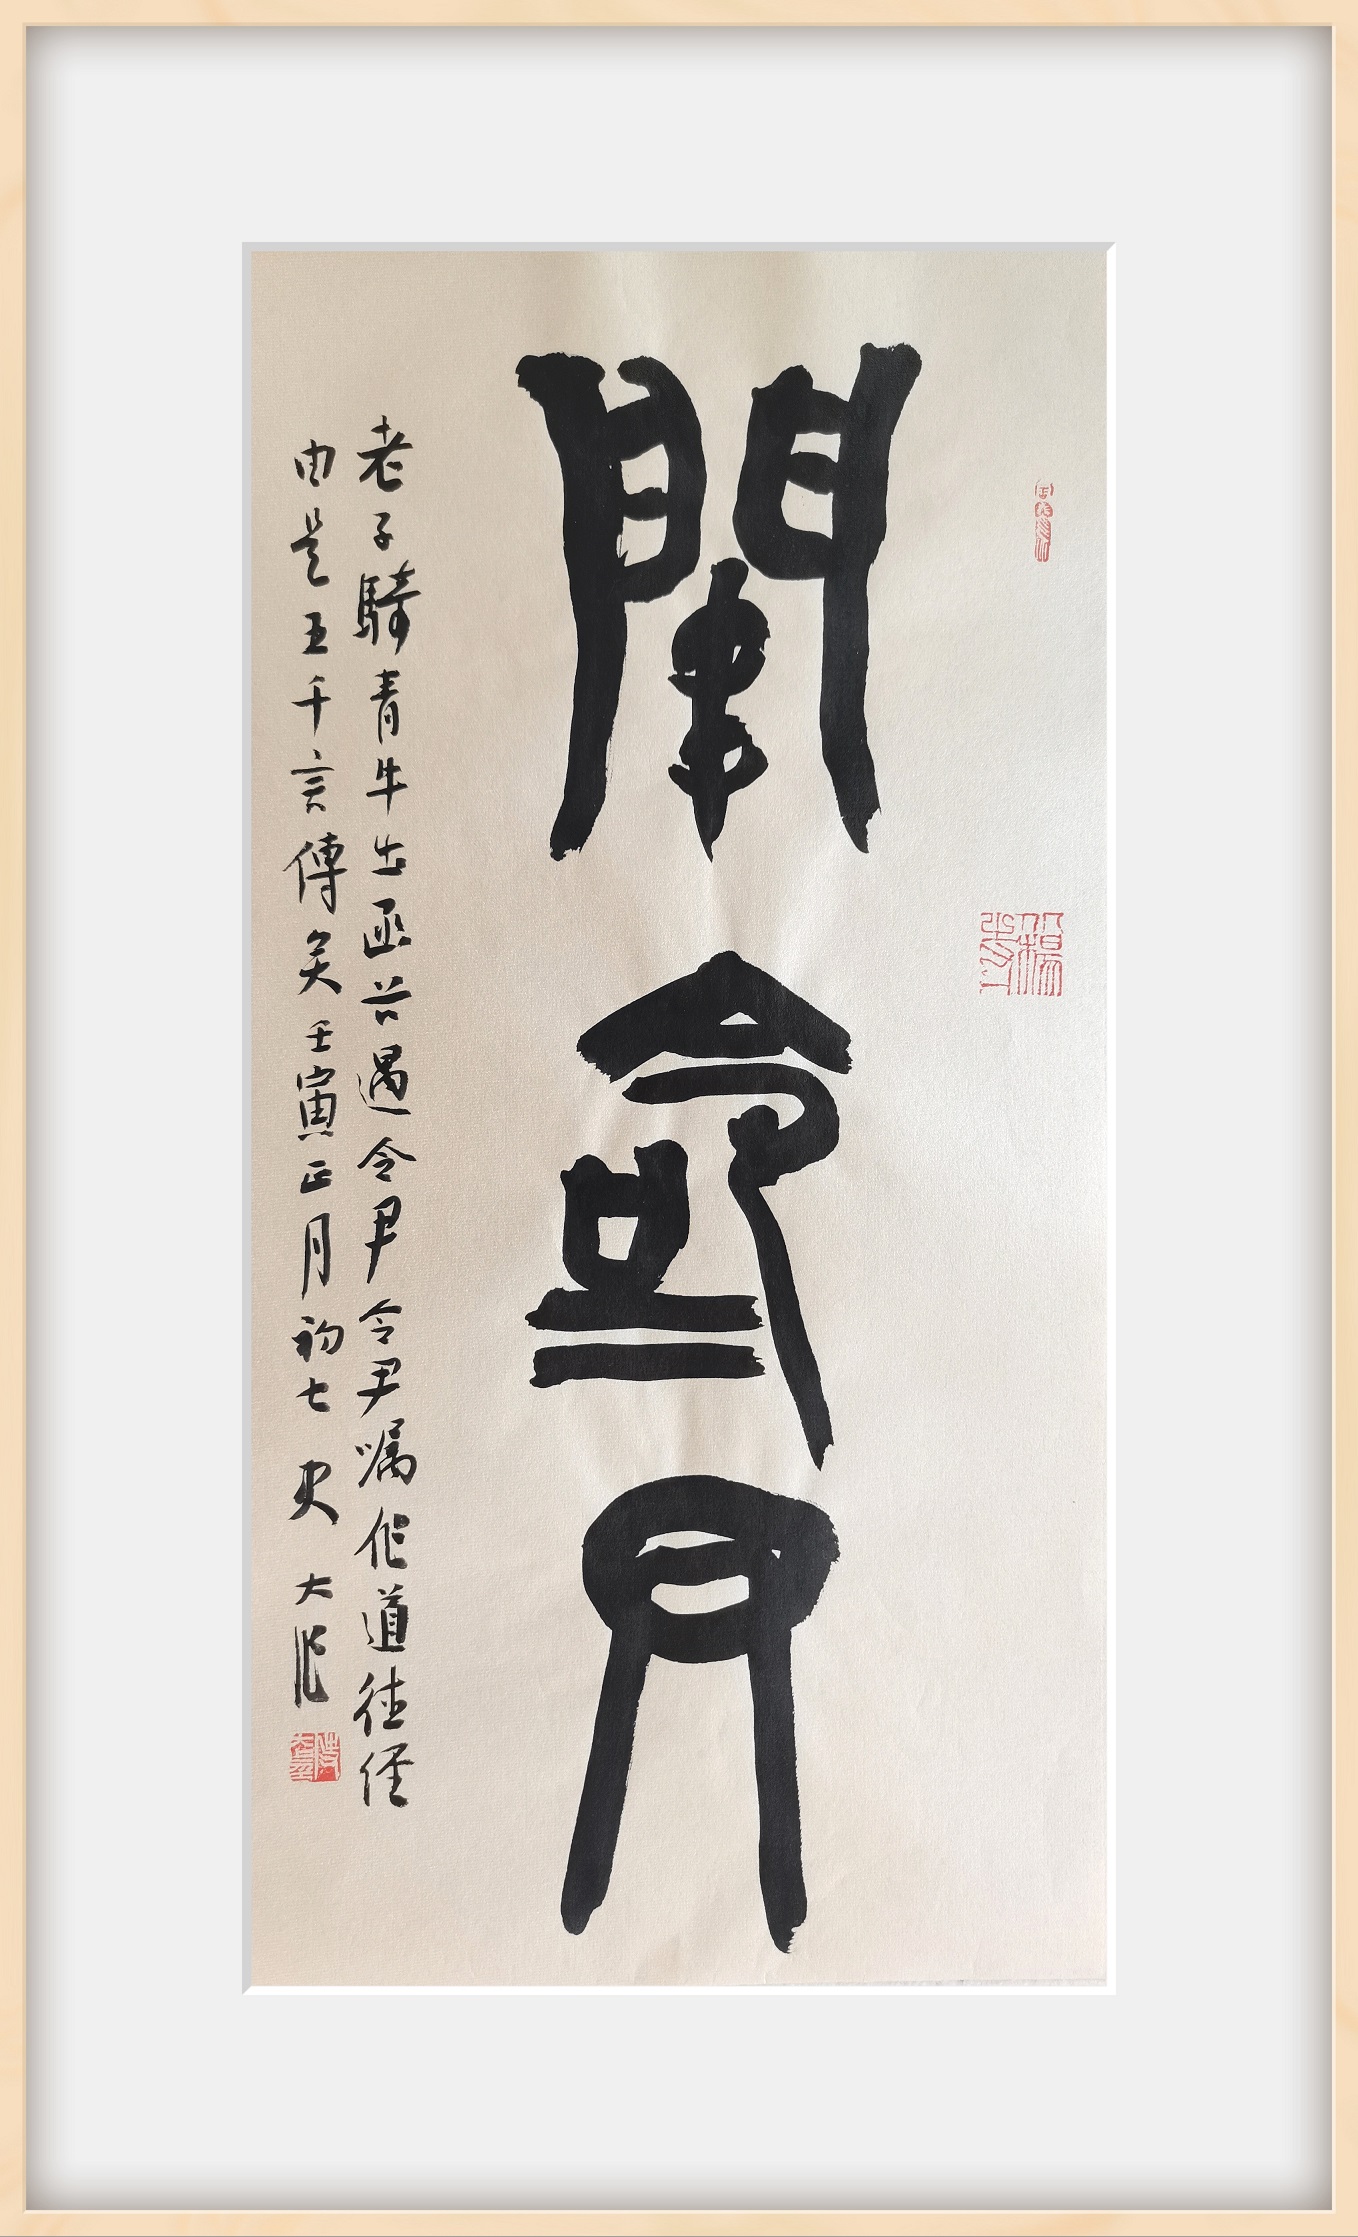 關令尹
老子騎青牛出函谷遇令尹令尹嘱作道德經
由是五千言傳矣壬寅正月初七史大